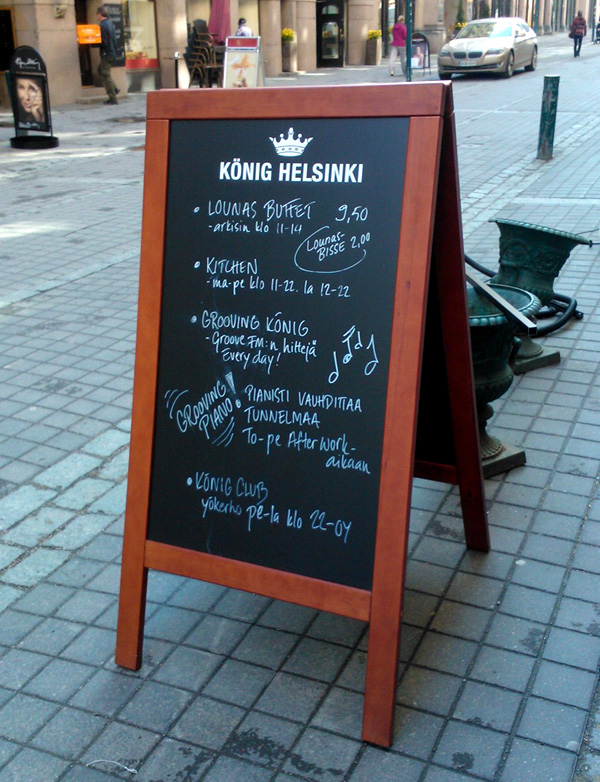 KÖNIG HELSINKI
• LOUNAS BUFFET 9,50
-arkisin klo 11-14
LOUNAS-
BISSE 2,00
• KITCHEN
-ma-pe klo 11-22. la 12-22
• GROOVING KÖNIG
- Groove FM:n hittejä
Every day!
GROOVING
PIANO!
• PIANISTI VAUHDITTAA
TUNNELMAA
To-pe Afterwork-
aikaan
• KÖNIG CLUB
yökerho pe-la klo 22-04